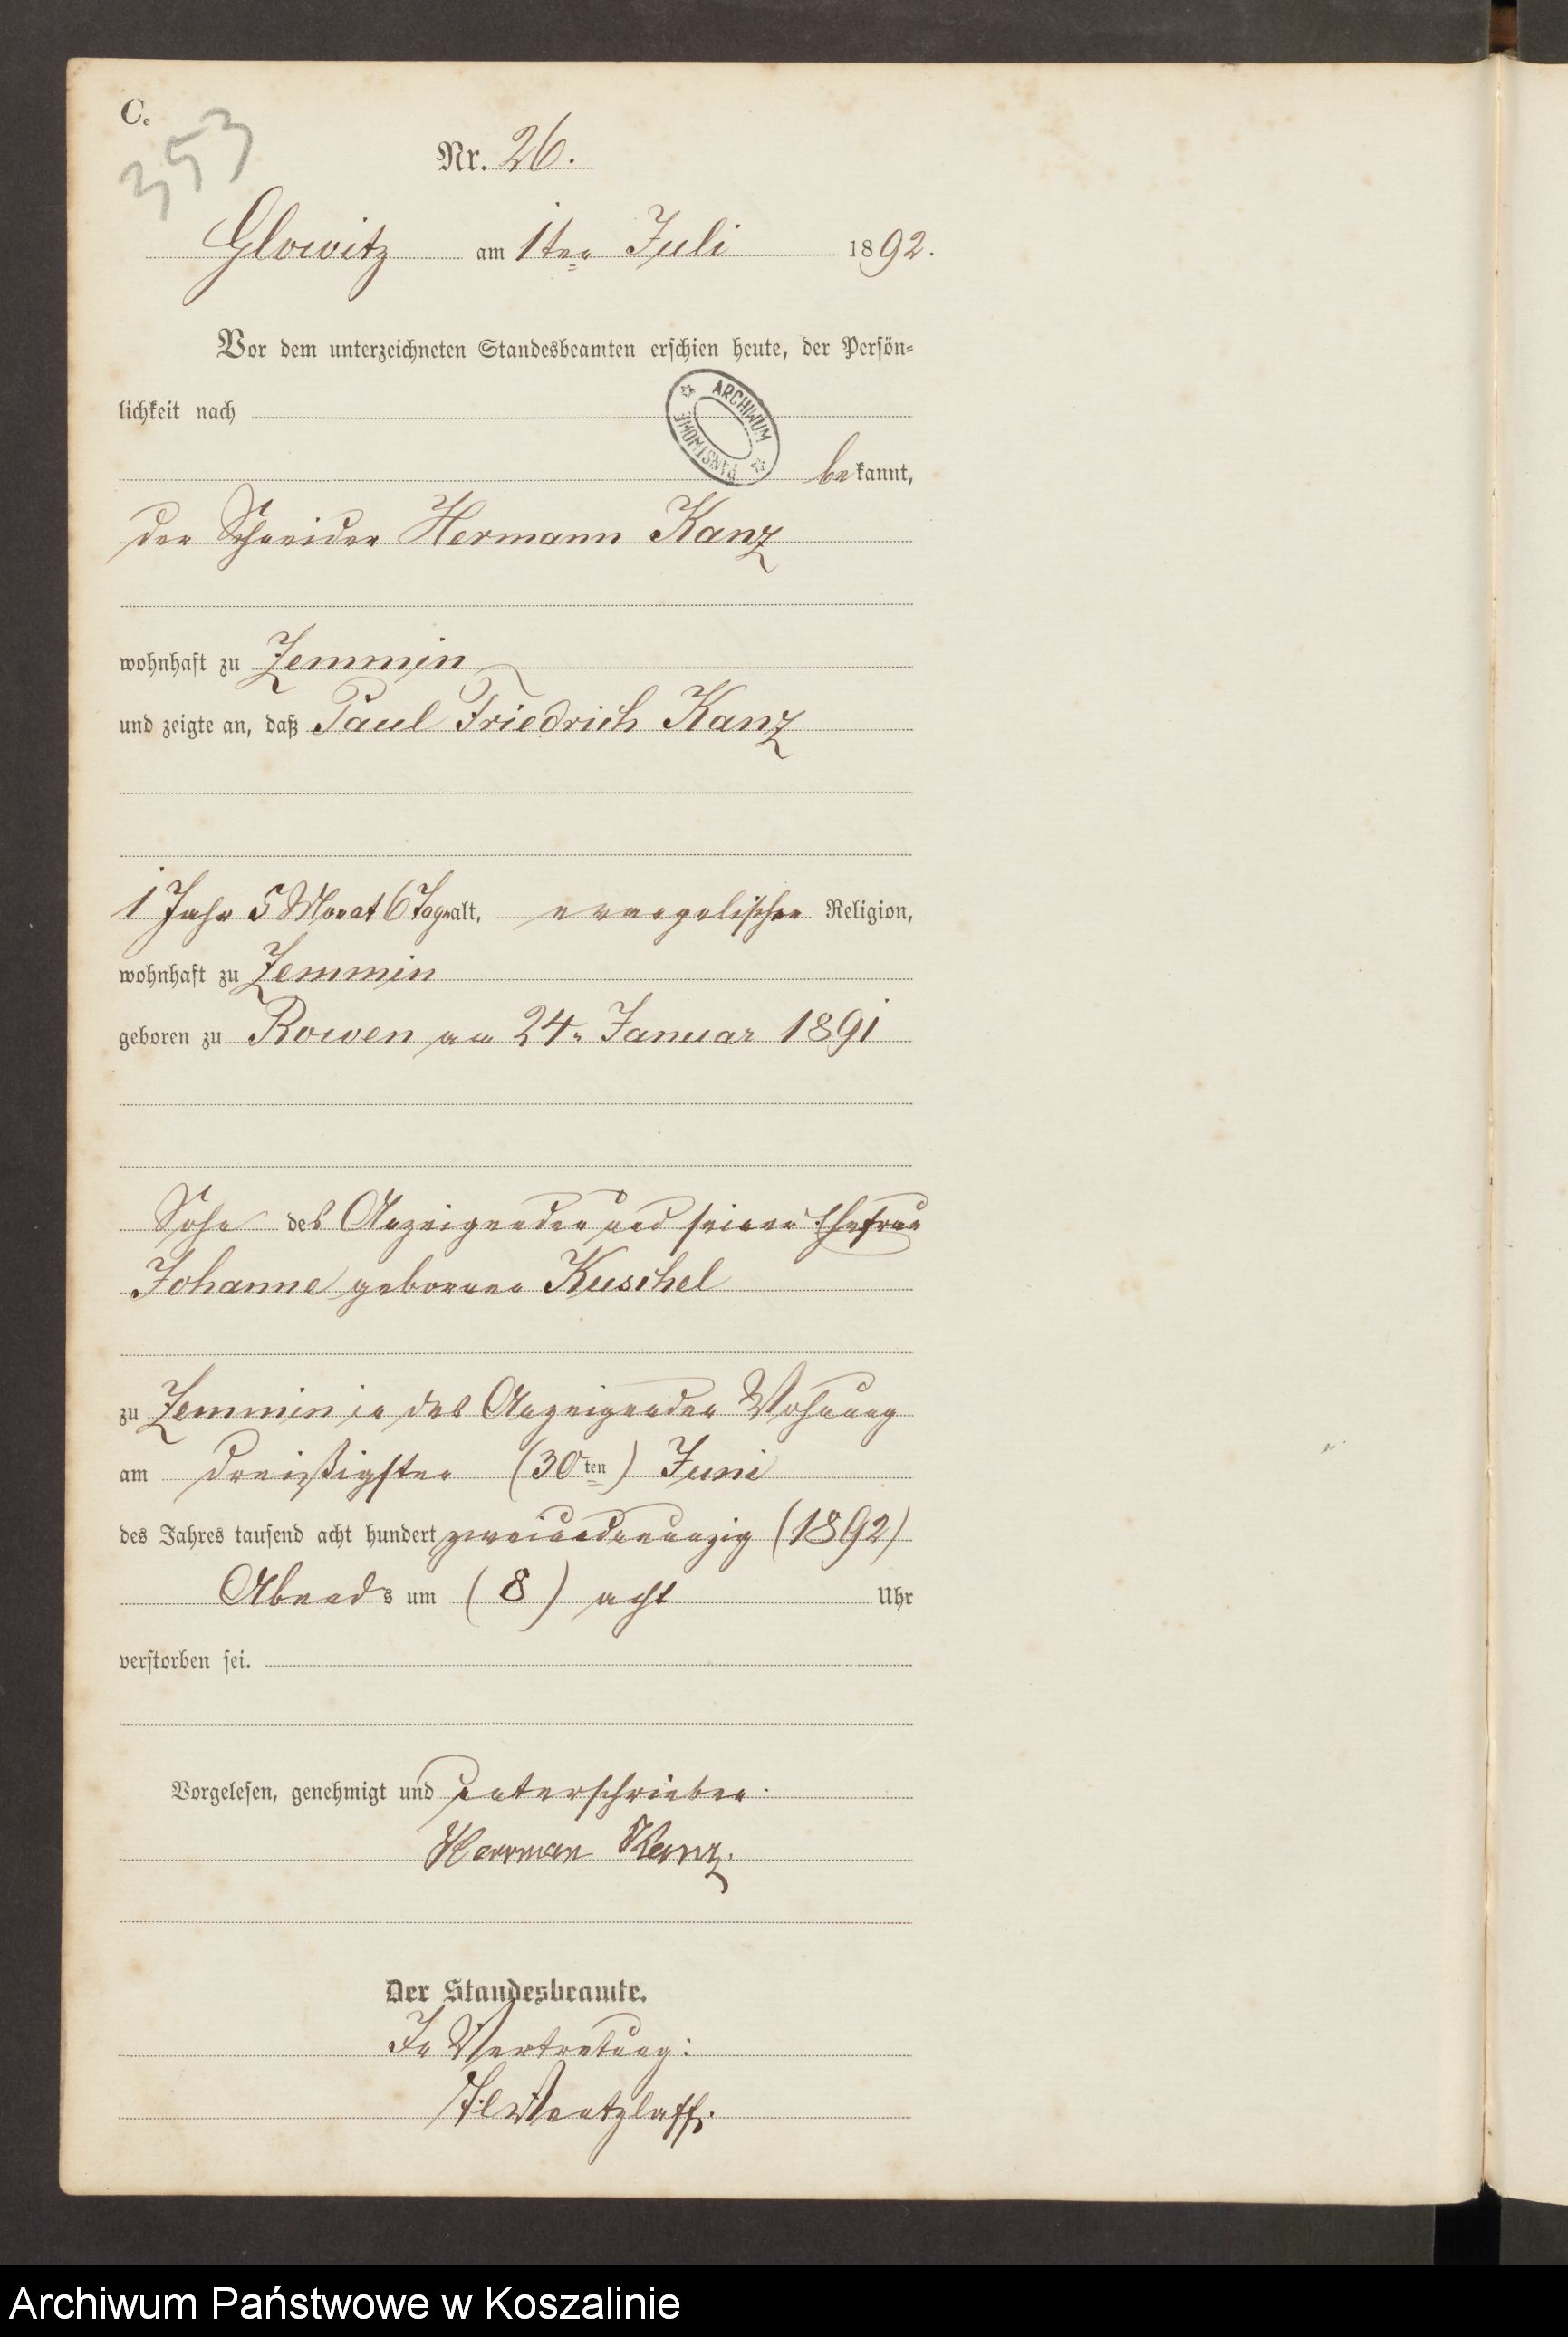 C.
353
Nr. 26.
Glowitz am 1ten Juli 1892.
Vor dem unterzeichneten Standesbeamten erschien heute, der Persön-
lichkeit nach
ARCHIWUM PAŃSTWOWE
bekannt,
der Schneider Hermann Kanz
wohnhaft zu Zemmin
und zeigte an, daß Paul Friedrich Kanz
1 Jahr 5 Monat 6 Tage alt, evangelischer Religion,
wohnhaft zu Zemmin
geboren zu Rowen am 24. Januar 1891
Sohn des Anzeigenden und seiner Ehefrau
Johanne geborene Kuschel
zu Zemmin in des Anzeigenden Wohnung
am dreißigsten (30ten) Juni
des Jahres tausend acht hundert zweiundneunzig (1892)
Abends um (8) acht Uhr
verstorben sei.
Vorgelesen, genehmigt und unterschrieben.
Herrman Kanz.
Der Standesbeamte.
In Vertretung:
Wentzlaff.
Archiwum Państwowe w Koszalinie